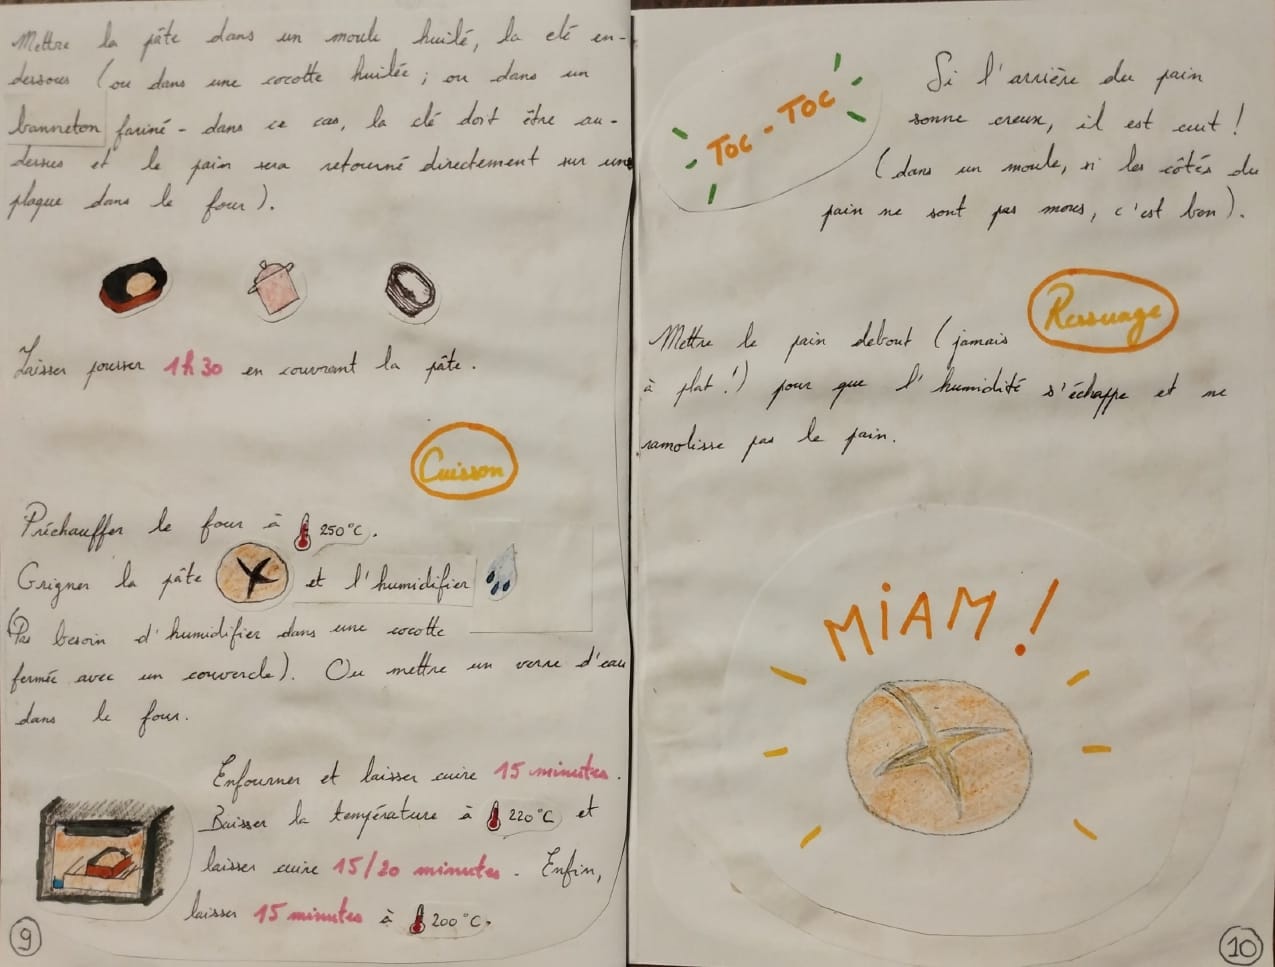 Mettre la pâte dans un moule huilé, la clé en-
dessous (ou dans une cocotte huilée ; ou dans un
banneton fariné - dans ce cas, la clé doit être au-
dessus et le pain sera retourné directement sur une
plaque dans le four).
Laisser pousser 1h30 en couvrant la pâte.
Cuisson
Préchauffer le four à 250°C.
Grigner la pâte et l'humidifier
(Pas besoin d'humidifier dans une cocotte
fermée avec un couvercle). Ou mettre un verre d'eau
dans le four.
Enfourner et laisser cuire 15 minutes.
Baisser la température à 220°C et
laisser cuire 15/20 minutes. Enfin,
laisser 15 minutes à 200°C.
9
TOC - TOC
Si l'arrière du pain
sonne creux, il est cuit !
(dans un moule, si les côtés du
pain ne sont pas mous, c'est bon).
Ressuage
Mettre le pain debout (jamais
à plat !) pour que l'humidité s'échappe et ne
ramolisse pas le pain.
MiAM !
10